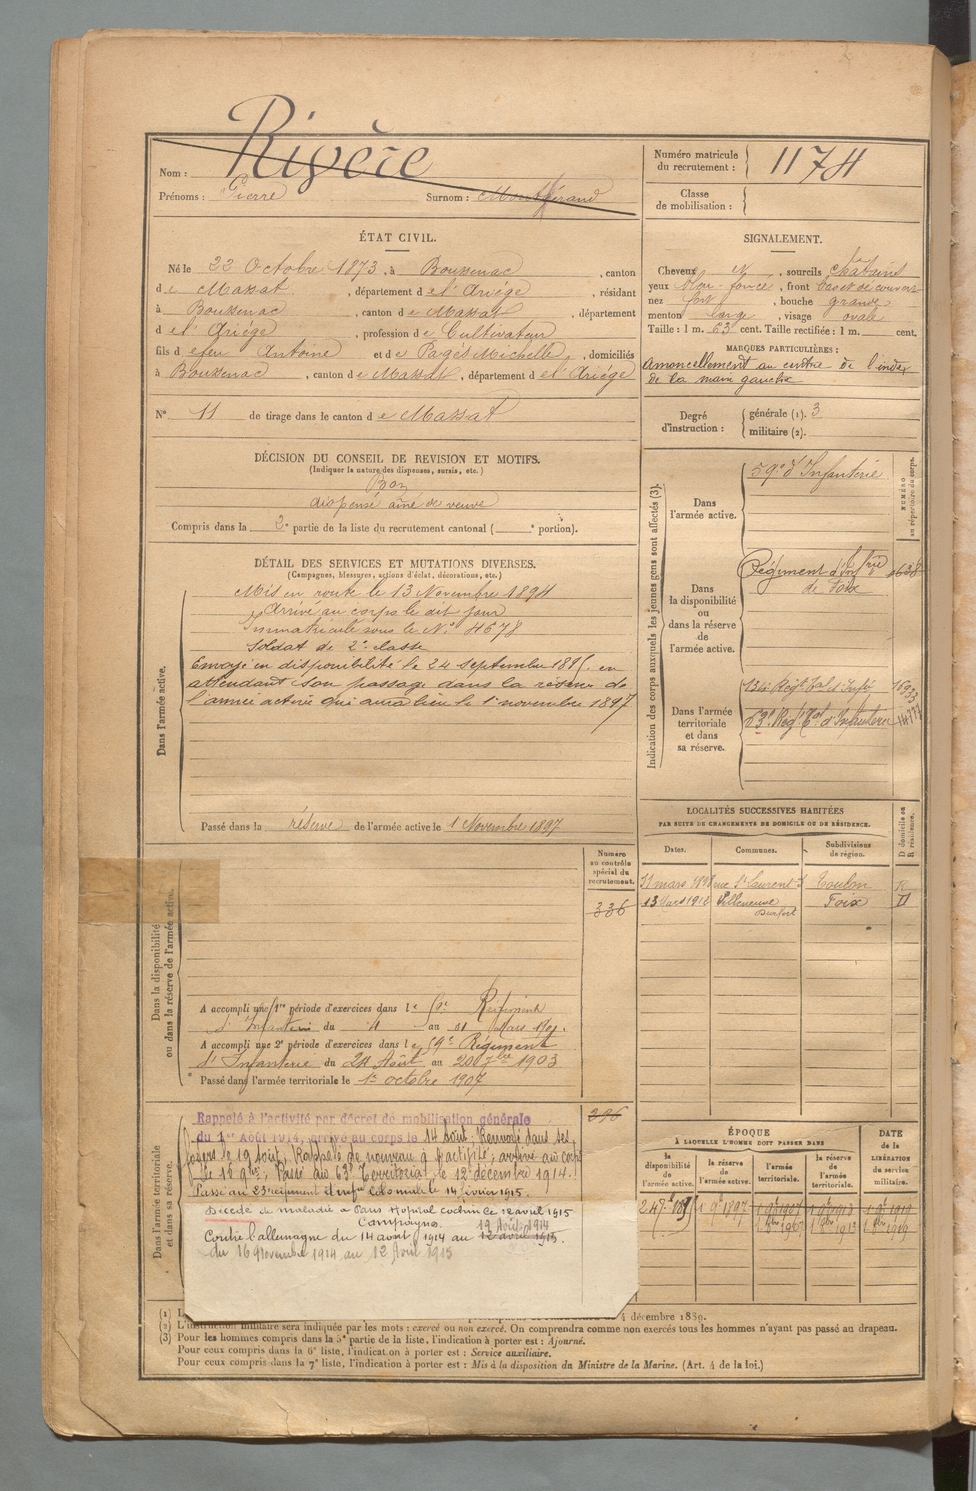 Nom : Rivère
Prénoms : Pierre Surnom : Montgérand
Numéro matricule du recrutement : 1174
Classe de mobilisation :
ÉTAT CIVIL.
Né le 22 Octobre 1873, à Boussenac, canton
de Massat, département de l'Ariége, résidant
à Boussenac, canton de Massat, département
de l'Ariége, profession de Cultivateur
fils de feu Antoine et de Pagés Michelle, domiciliés
à Boussenac, canton de Massat, département de l'Ariége
N° 11 de tirage dans le canton de Massat
SIGNALEMENT.
Cheveux N, sourcils châtains
yeux bleu foncé, front bas et découvert
nez fort, bouche grande
menton large, visage ovale
Taille : 1 m. 63 cent. Taille rectifiée : 1 m. cent.
MARQUES PARTICULIÈRES :
amoncellement au centre de l'index
de la main gauche
Degré d'instruction : générale (1). 3
militaire (2).
DÉCISION DU CONSEIL DE REVISION ET MOTIFS.
(Indiquer la nature des dispenses, sursis, etc.)
Bon
dispensé aîné de veuve
Compris dans la 2e partie de la liste du recrutement cantonal ( e portion).
DÉTAIL DES SERVICES ET MUTATIONS DIVERSES.
(Campagnes, blessures, actions d'éclat, décorations, etc.)
Dans l'armée active.
Mis en route le 13 Novembre 1894
Arrivé au corps le dit jour
Immatriculé sous le N° 4678
Soldat de 2e classe
Envoyé en disponibilité le 24 septembre 1895 en
attendant son passage dans la réserve de
l'armée active qui aura lieu le 1er novembre 1897
Passé dans la réserve de l'armée active le 1 Novembre 1897
Indication des corps auxquels les jeunes gens sont affectés (3).
NUMÉRO au répertoire du corps.
Dans l'armée active.
59e d'Infanterie
Dans la disponibilité ou dans la réserve de l'armée active.
Régiment d'Infrie
de Foix
Dans l'armée territoriale et dans sa réserve.
134 Régt Tal d'Infie
63e Régt Tal d'Infanterie
LOCALITÉS SUCCESSIVES HABITÉES
PAR SUITE DE CHANGEMENTS DE DOMICILE OU DE RÉSIDENCE.
Dates. Communes. Subdivisions de région. D domicile ou R résidence.
31 mars 1898 rue St Laurent Toulon R
13 Mars 1912 Villeneuve Durfort Foix D
Dans la disponibilité ou dans la réserve de l'armée active.
Numéro au contrôle spécial du recrutement.
336
A accompli une 1re période d'exercices dans le 59e Régiment
d'Infanterie du 4 au 31 Mars 1901.
A accompli une 2e période d'exercices dans le 59e Régiment
d'Infanterie du 24 Août au 20 7bre 1903
Passé dans l'armée territoriale le 1er octobre 1907
Dans l'armée territoriale et dans sa réserve.
Rappelé à l'activité par décret de mobilisation générale
du 1er Août 1914, arrivé au corps le 14 août; Renvoyé dans ses
foyers le 19 août; Rappelé de nouveau à l'activité; arrivé au corps
le 16 9bre; Passé au 63e Territorial le 12 décembre 1914.
Passé au 23e régiment d'infie coloniale le 14 février 1915.
Décédé de maladie à Paris Hôpital cochin le 12 avril 1915
Campagne.
19 Août 1914
Contre l'allemagne du 14 août 1914 au 12 avril 1915.
du 16 Novembre 1914 au 12 Avril 1915
ÉPOQUE
À LAQUELLE L'HOMME DOIT PASSER DANS
la disponibilité de l'armée active. la réserve de l'armée active. l'armée territoriale. la réserve de l'armée territoriale.
DATE de la LIBÉRATION du service militaire.
24 7bre 1895 1 9bre 1897
4 décembre 1889.
(2) L'instruction militaire sera indiquée par les mots : exercé ou non exercé. On comprendra comme non exercés tous les hommes n'ayant pas passé au drapeau.
(3) Pour les hommes compris dans la 5e partie de la liste, l'indication à porter est : Ajourné.
Pour ceux compris dans la 6e liste, l'indication à porter est : Service auxiliaire.
Pour ceux compris dans la 7e liste, l'indication à porter est : Mis à la disposition du Ministre de la Marine. (Art. 4 de la loi.)